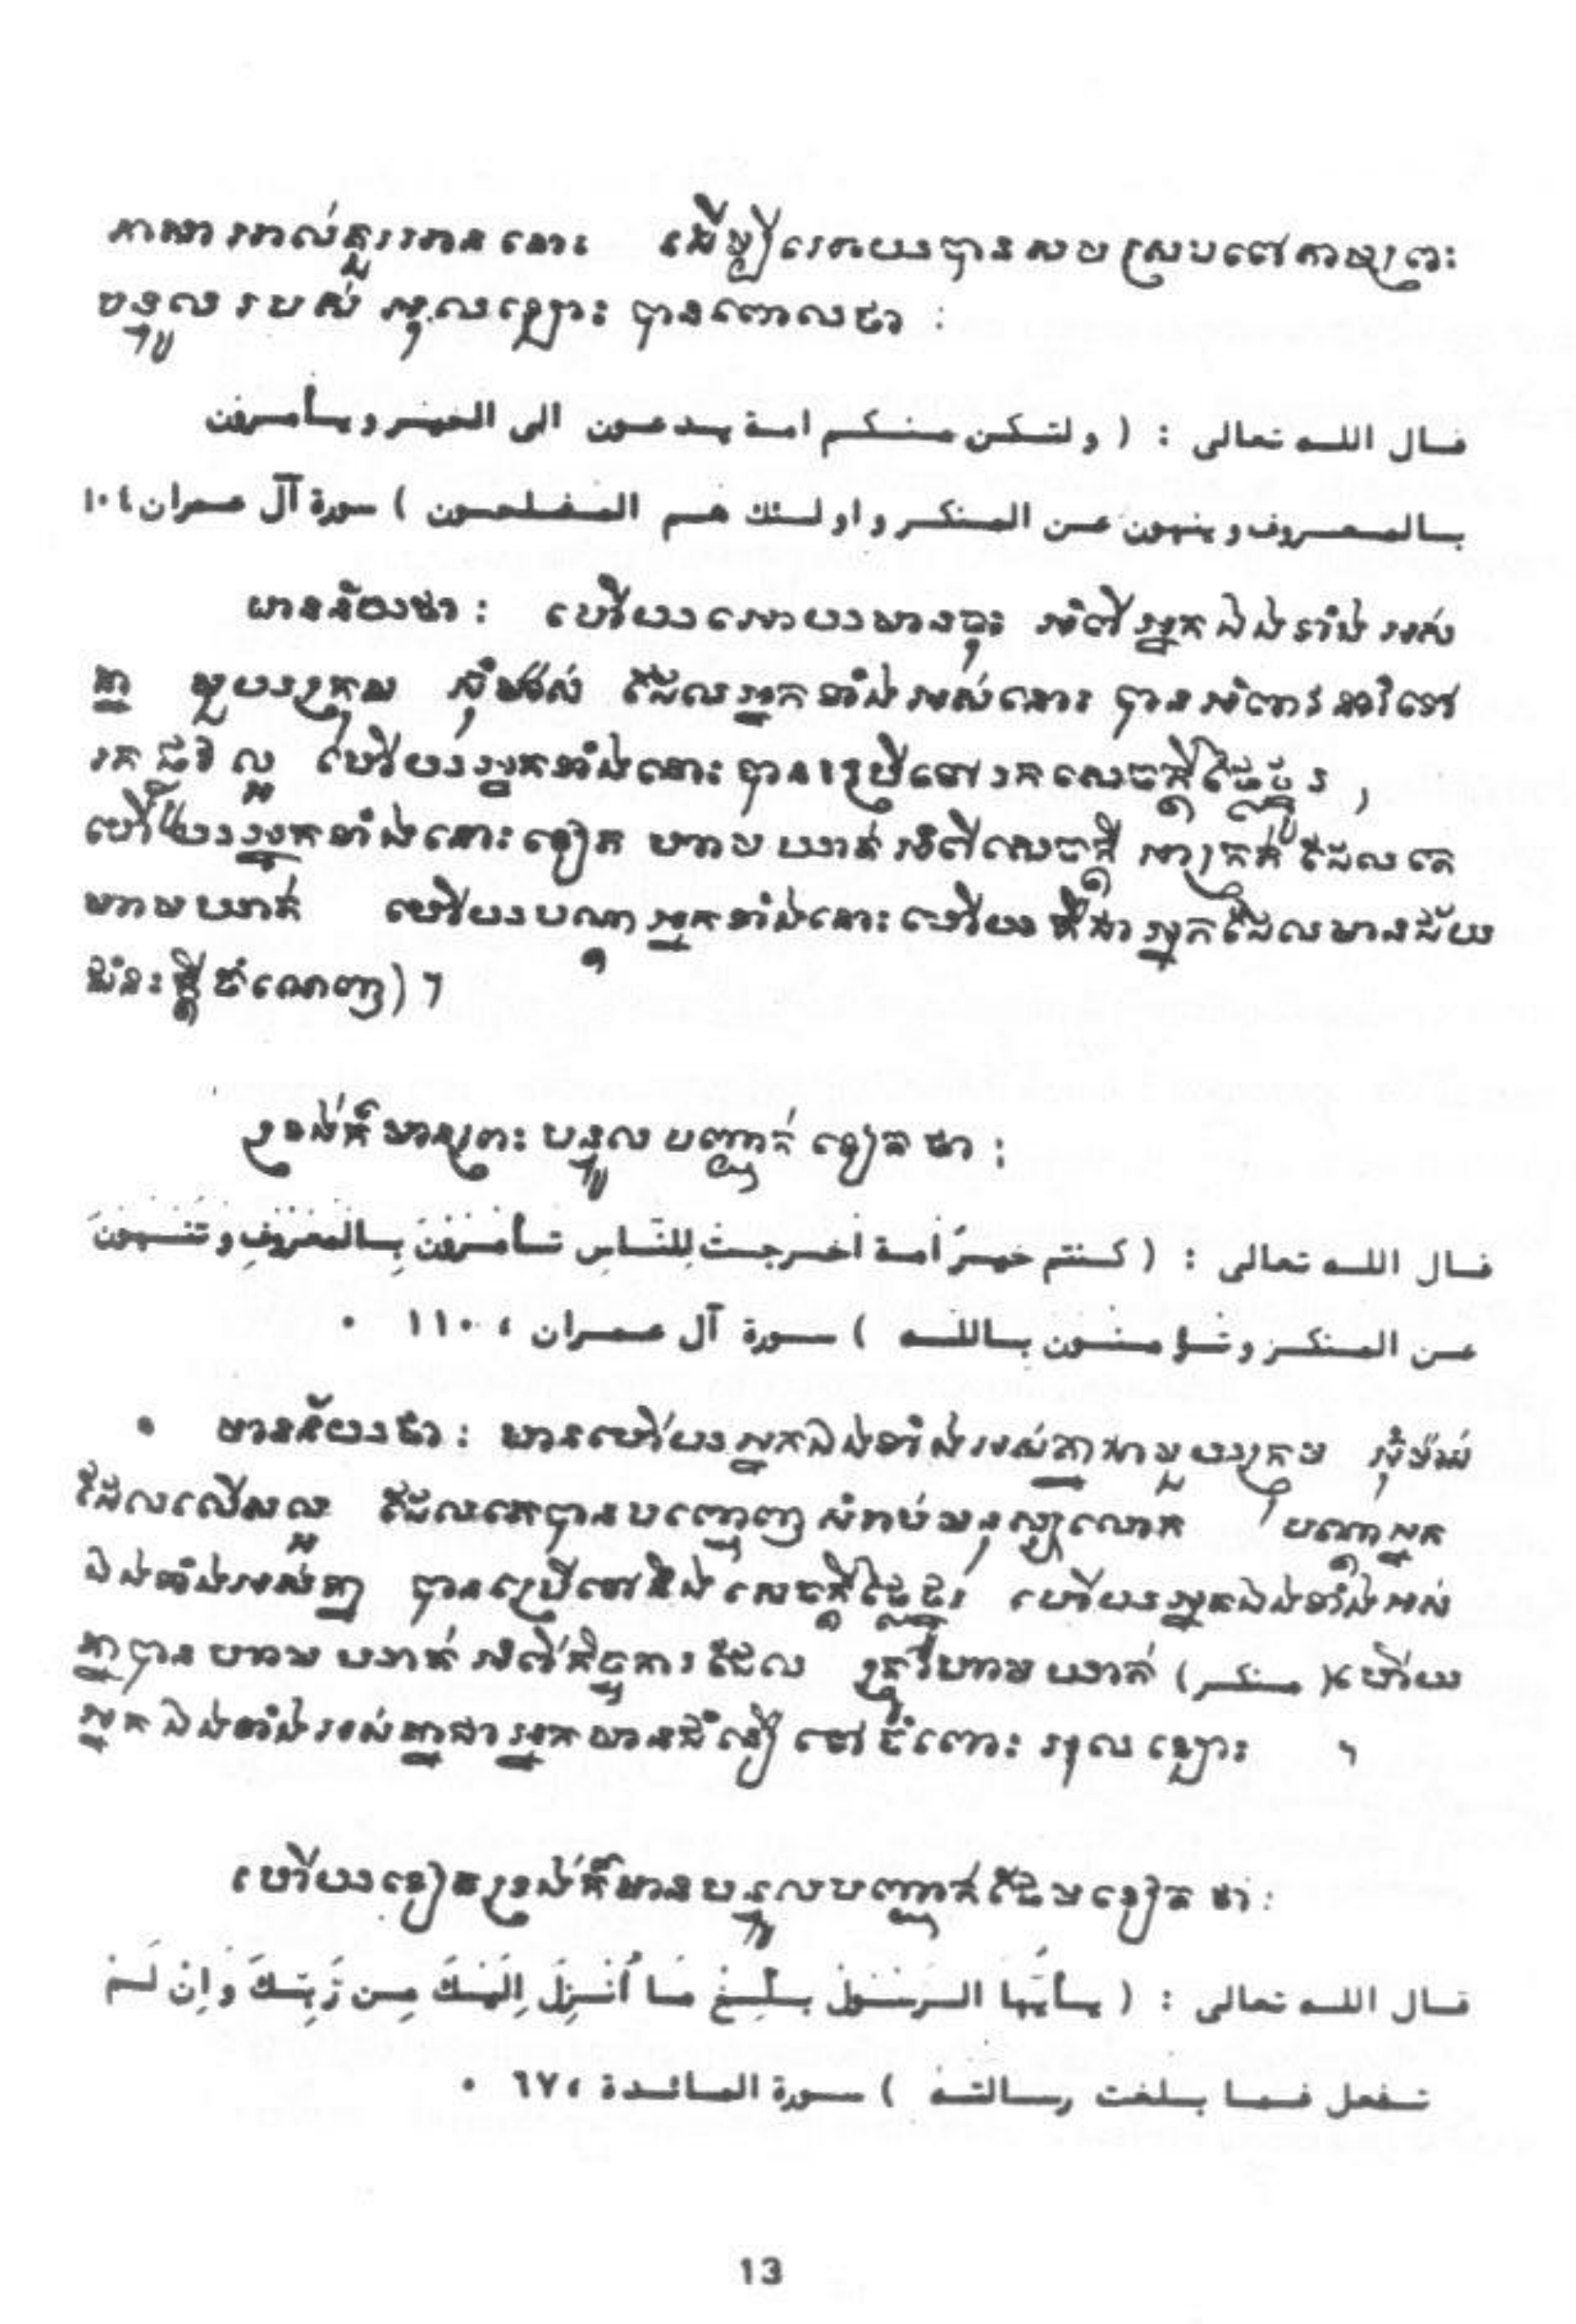 ភាសាអាល់គួរអាន នោះ ដើម្បីអោយបានសមស្របទៅតាមព្រះ
បន្ទូលរបស់ អុលឡោះ បានពោលថា :
قال الله تعالى : ( ولتكن منكم امة يدعون الى الخير ويأمرون
بالمعروف وينهون عن المنكر واولئك هم المفلحون ) سورة آل عمران ١٠٤
មានន័យថា : ហើយអោយមានចុះ អំពីអ្នកឯងទាំងអស់
គ្នា មួយក្រុម ដែលអ្នកទាំងអស់នោះ បានអំពាវនាវទៅ
រក ល្អ ហើយអ្នកទាំងនោះបានប្រើទៅរកសេចក្ដីថ្លៃថ្នូរ ,
ហើយអ្នកទាំងនោះទៀត ហាមឃាត់អំពីសេចក្ដី អាក្រក់ដែលគេ
ហាមឃាត់ ហើយបណ្ដាអ្នកទាំងនោះហើយ គឺជាអ្នកដែលមានជ័យ
ជំនះ ចំណេញ) ។
ទ្រង់ក៏មានព្រះបន្ទូលបញ្ជាក់ទៀតថា :
قال الله تعالى : ( كنتم خيرَ امة اخرجت لِلنَّاسِ تَأمُرُوْنَ بِالْمَعْرُوْفِ وَتَنْهَوْنَ
عن المنكر وتؤمنون بالله ) سورة آل عمران ، ١١٠ .
• មានន័យថា : មានហើយអ្នកឯងទាំងអស់គ្នាជាមួយក្រុម
ដែលលើសល្អ ដែលគេបានបញ្ចេញសំរាប់មនុស្សលោក បណ្ដាអ្នក
ឯងទាំងអស់គ្នា បានប្រើទៅនឹងសេចក្ដីថ្លៃថ្នូរ ហើយអ្នកឯងទាំងអស់
គ្នាបានហាមឃាត់អំពីកិច្ចការដែល ត្រូវហាមឃាត់ (منكر) ហើយ
អ្នកឯងទាំងអស់គ្នាជាអ្នកមានជំនឿ ទៅចំពោះ អុលឡោះ ។
ហើយទៀតទ្រង់ក៏មានបន្ទូលបញ្ជាក់ថែមទៀតថា :
قال الله تعالى : ( يٰأَيُّهَا الرَّسُوْلُ بَلِّغْ مَا أُنْزِلَ اِلَيْكَ مِن رَّبِّكَ وَاِنْ لَمْ
تفعل فما بلغت رسالته ) سورة المائدة ،٦٧ .
13